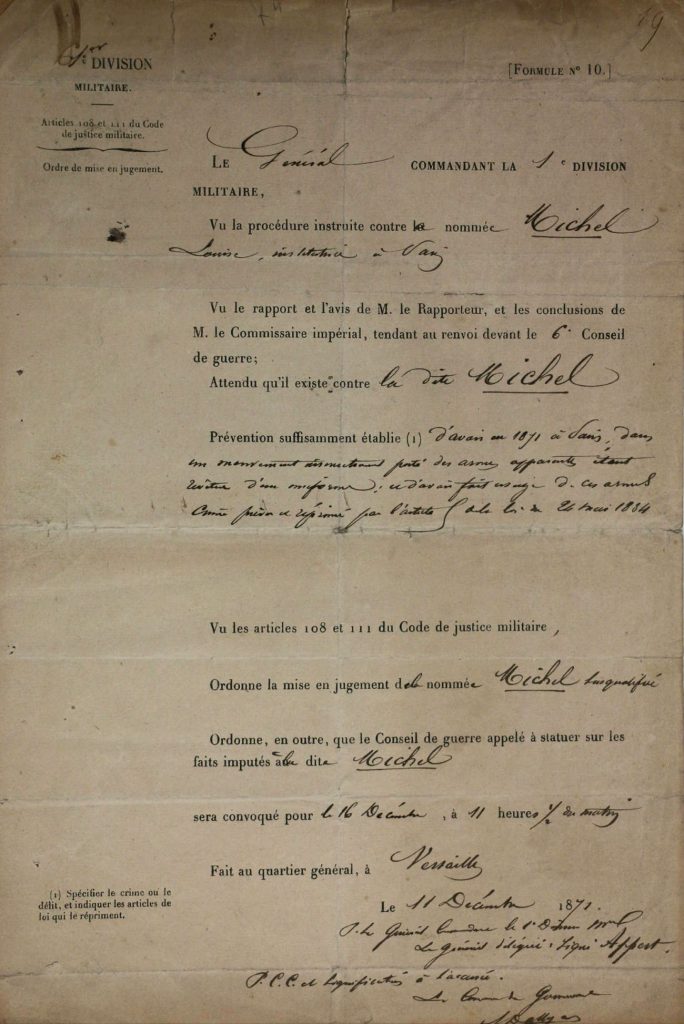 19
1ère DIVISION
MILITAIRE.
[FORMULE N° 10.]
Articles 108 et 111 du Code
de justice militaire.
Ordre de mise en jugement.
LE Général COMMANDANT LA 1e DIVISION
MILITAIRE,
Vu la procédure instruite contre la nommée Michel
Louise, institutrice à Paris
Vu le rapport et l'avis de M. le Rapporteur, et les conclusions de
M. le Commissaire impérial, tendant au renvoi devant le 6e Conseil
de guerre;
Attendu qu'il existe contre la dite Michel
Prévention suffisamment établie (1) d'avoir en 1871 à Paris, dans
un mouvement insurrectionnel porté des armes apparentes étant
revêtue d'un uniforme, et d'avoir fait usage de ces armes
Crime prévu et réprimé par l'article 5 de la loi du 24 mai 1834
Vu les articles 108 et 111 du Code de justice militaire,
Ordonne la mise en jugement de la nommée Michel susqualifiée
Ordonne, en outre, que le Conseil de guerre appelé à statuer sur les
faits imputés à la dite Michel
sera convoqué pour le 16 Décembre, à 11 heures ½ du matin
Fait au quartier général, à Versailles
Le 11 Décembre 1871.
(1) Spécifier le crime ou le
délit, et indiquer les articles de
loi qui le répriment.
P. Le Général Commandant la 1e Division Mre
Le Général délégué: Signé Appert.
P.C.C. et signification à l'accusée.
Le